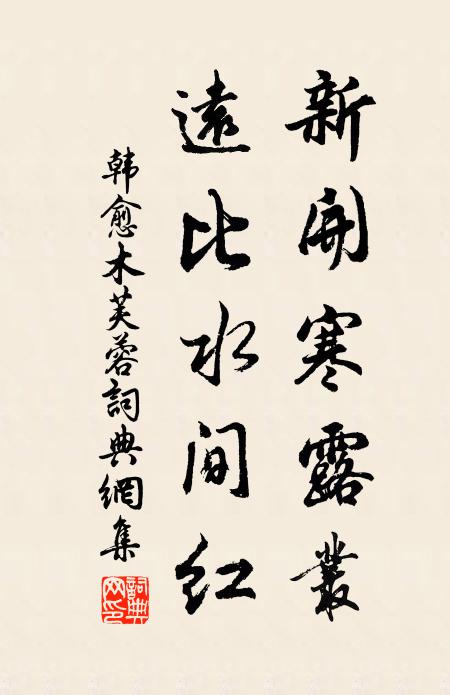 新開寒露叢
遠比水間紅
韩愈木芙蓉詞典網集
詞典網印